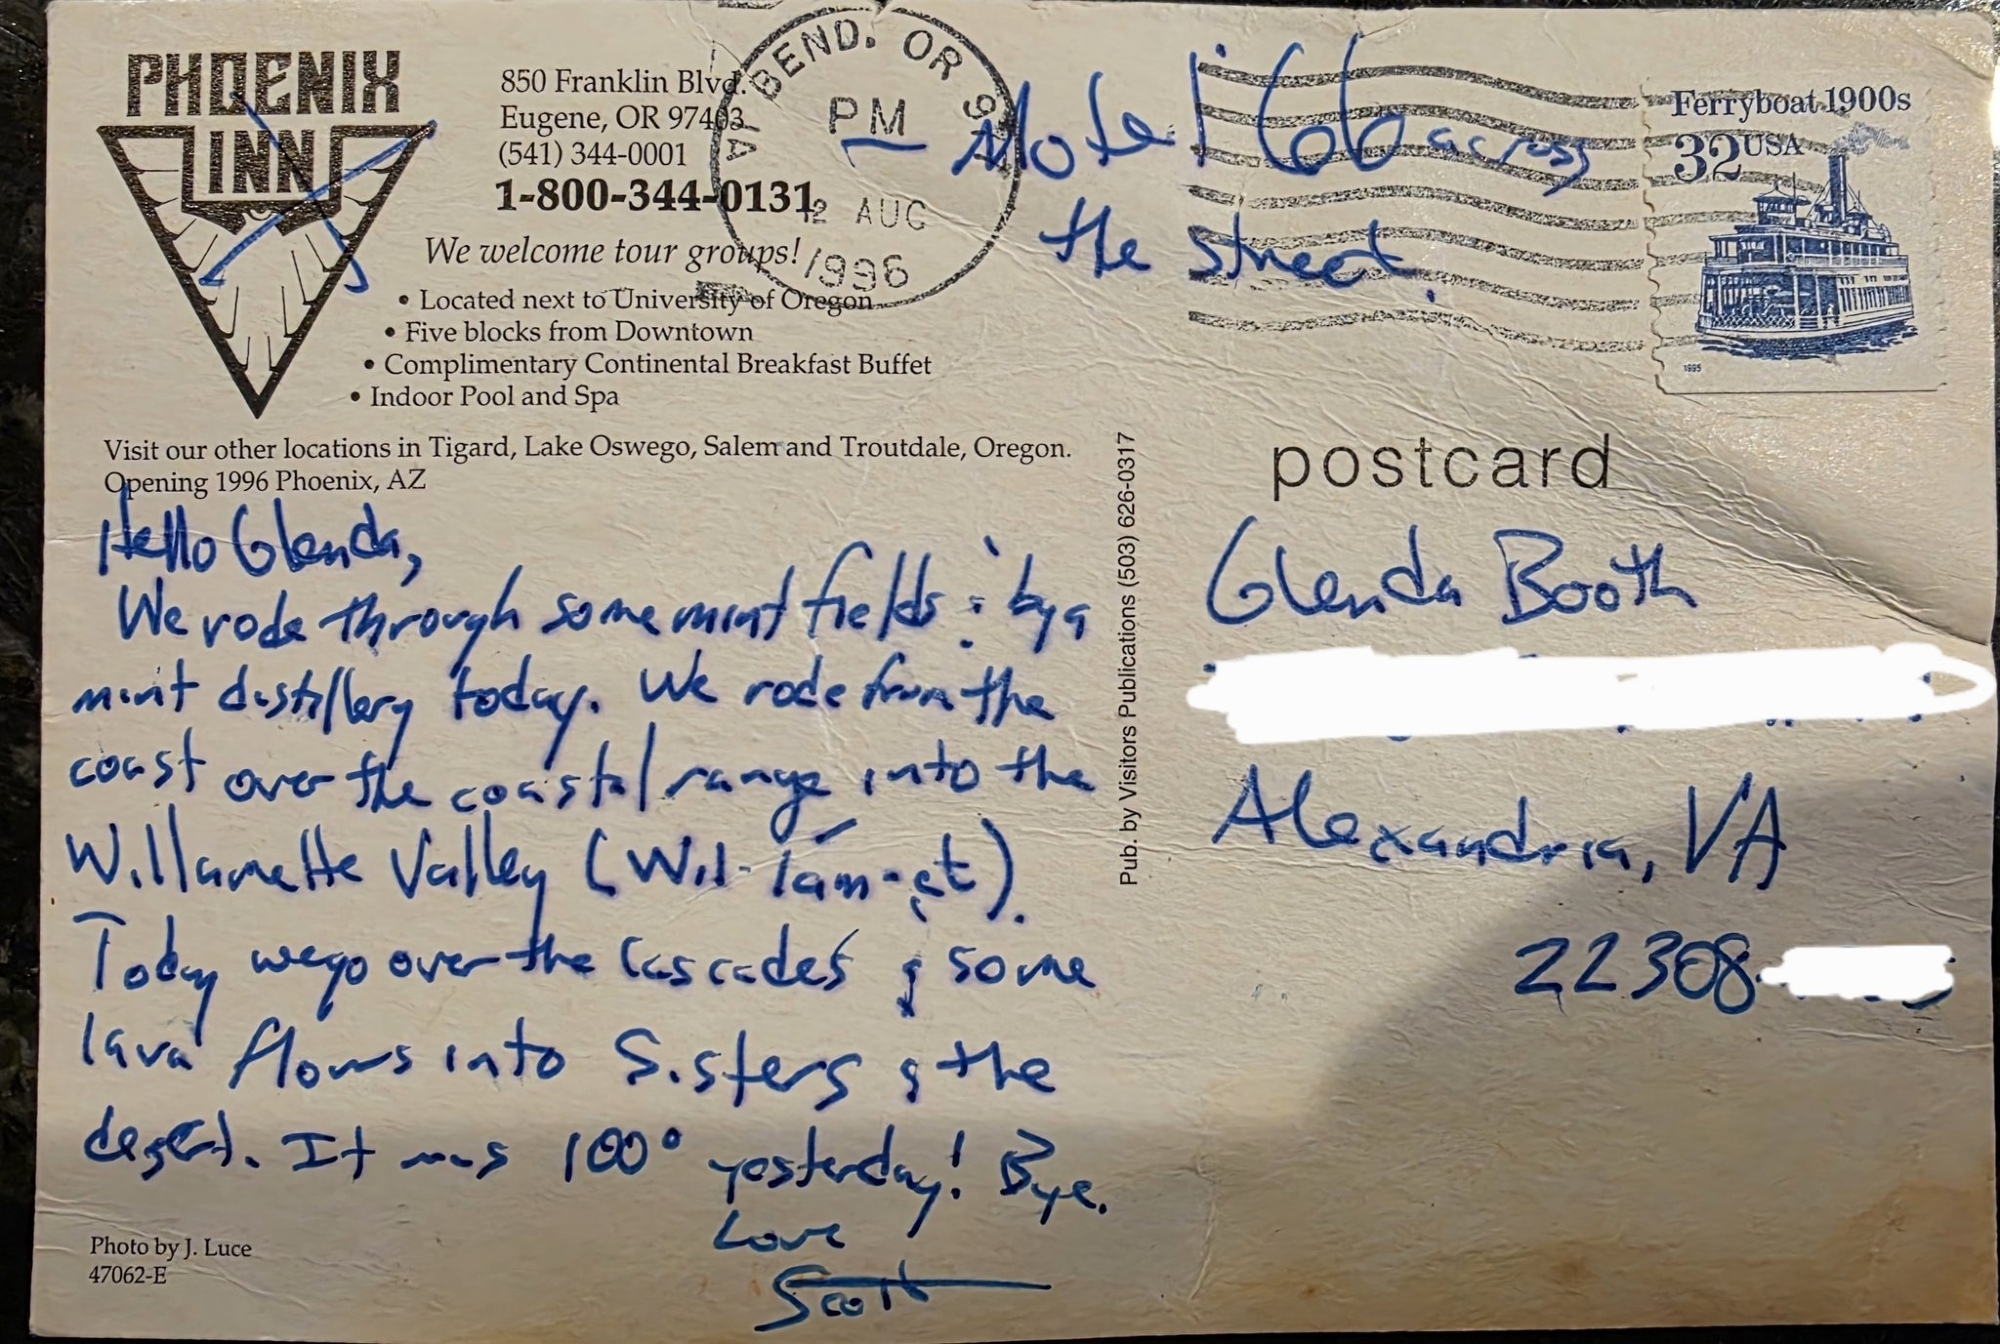 PHOENIX
INN
850 Franklin Blvd.
Eugene, OR 97403
(541) 344-0001
1-800-344-0131
We welcome tour groups!
• Located next to University of Oregon
• Five blocks from Downtown
• Complimentary Continental Breakfast Buffet
• Indoor Pool and Spa
Visit our other locations in Tigard, Lake Oswego, Salem and Troutdale, Oregon.
Opening 1996 Phoenix, AZ
BEND, OR 97
PM
12 AUG
1996
Motel 6 across
the street.
Ferryboat 1900s
32 USA
1995
Hello Glenda,
We rode through some mint fields & by a
mint distillery today. We rode from the
coast over the coastal range into the
Willamette Valley (Wil-lám-et).
Today we go over the Cascades & some
lava flows into Sisters & the
desert. It was 100° yesterday! Bye.
Love
Scott
Photo by J. Luce
47062-E
Pub. by Visitors Publications (503) 626-0317
postcard
Glenda Booth
Alexandria, VA
22308-